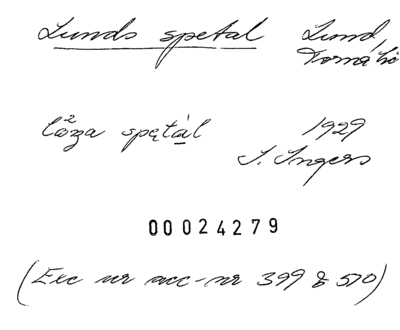 Lunds spetal Lund,
Torna hd
löza spętal 1929
I. Ingers
00024279
(Exc ur acc-nr 399 & 570)